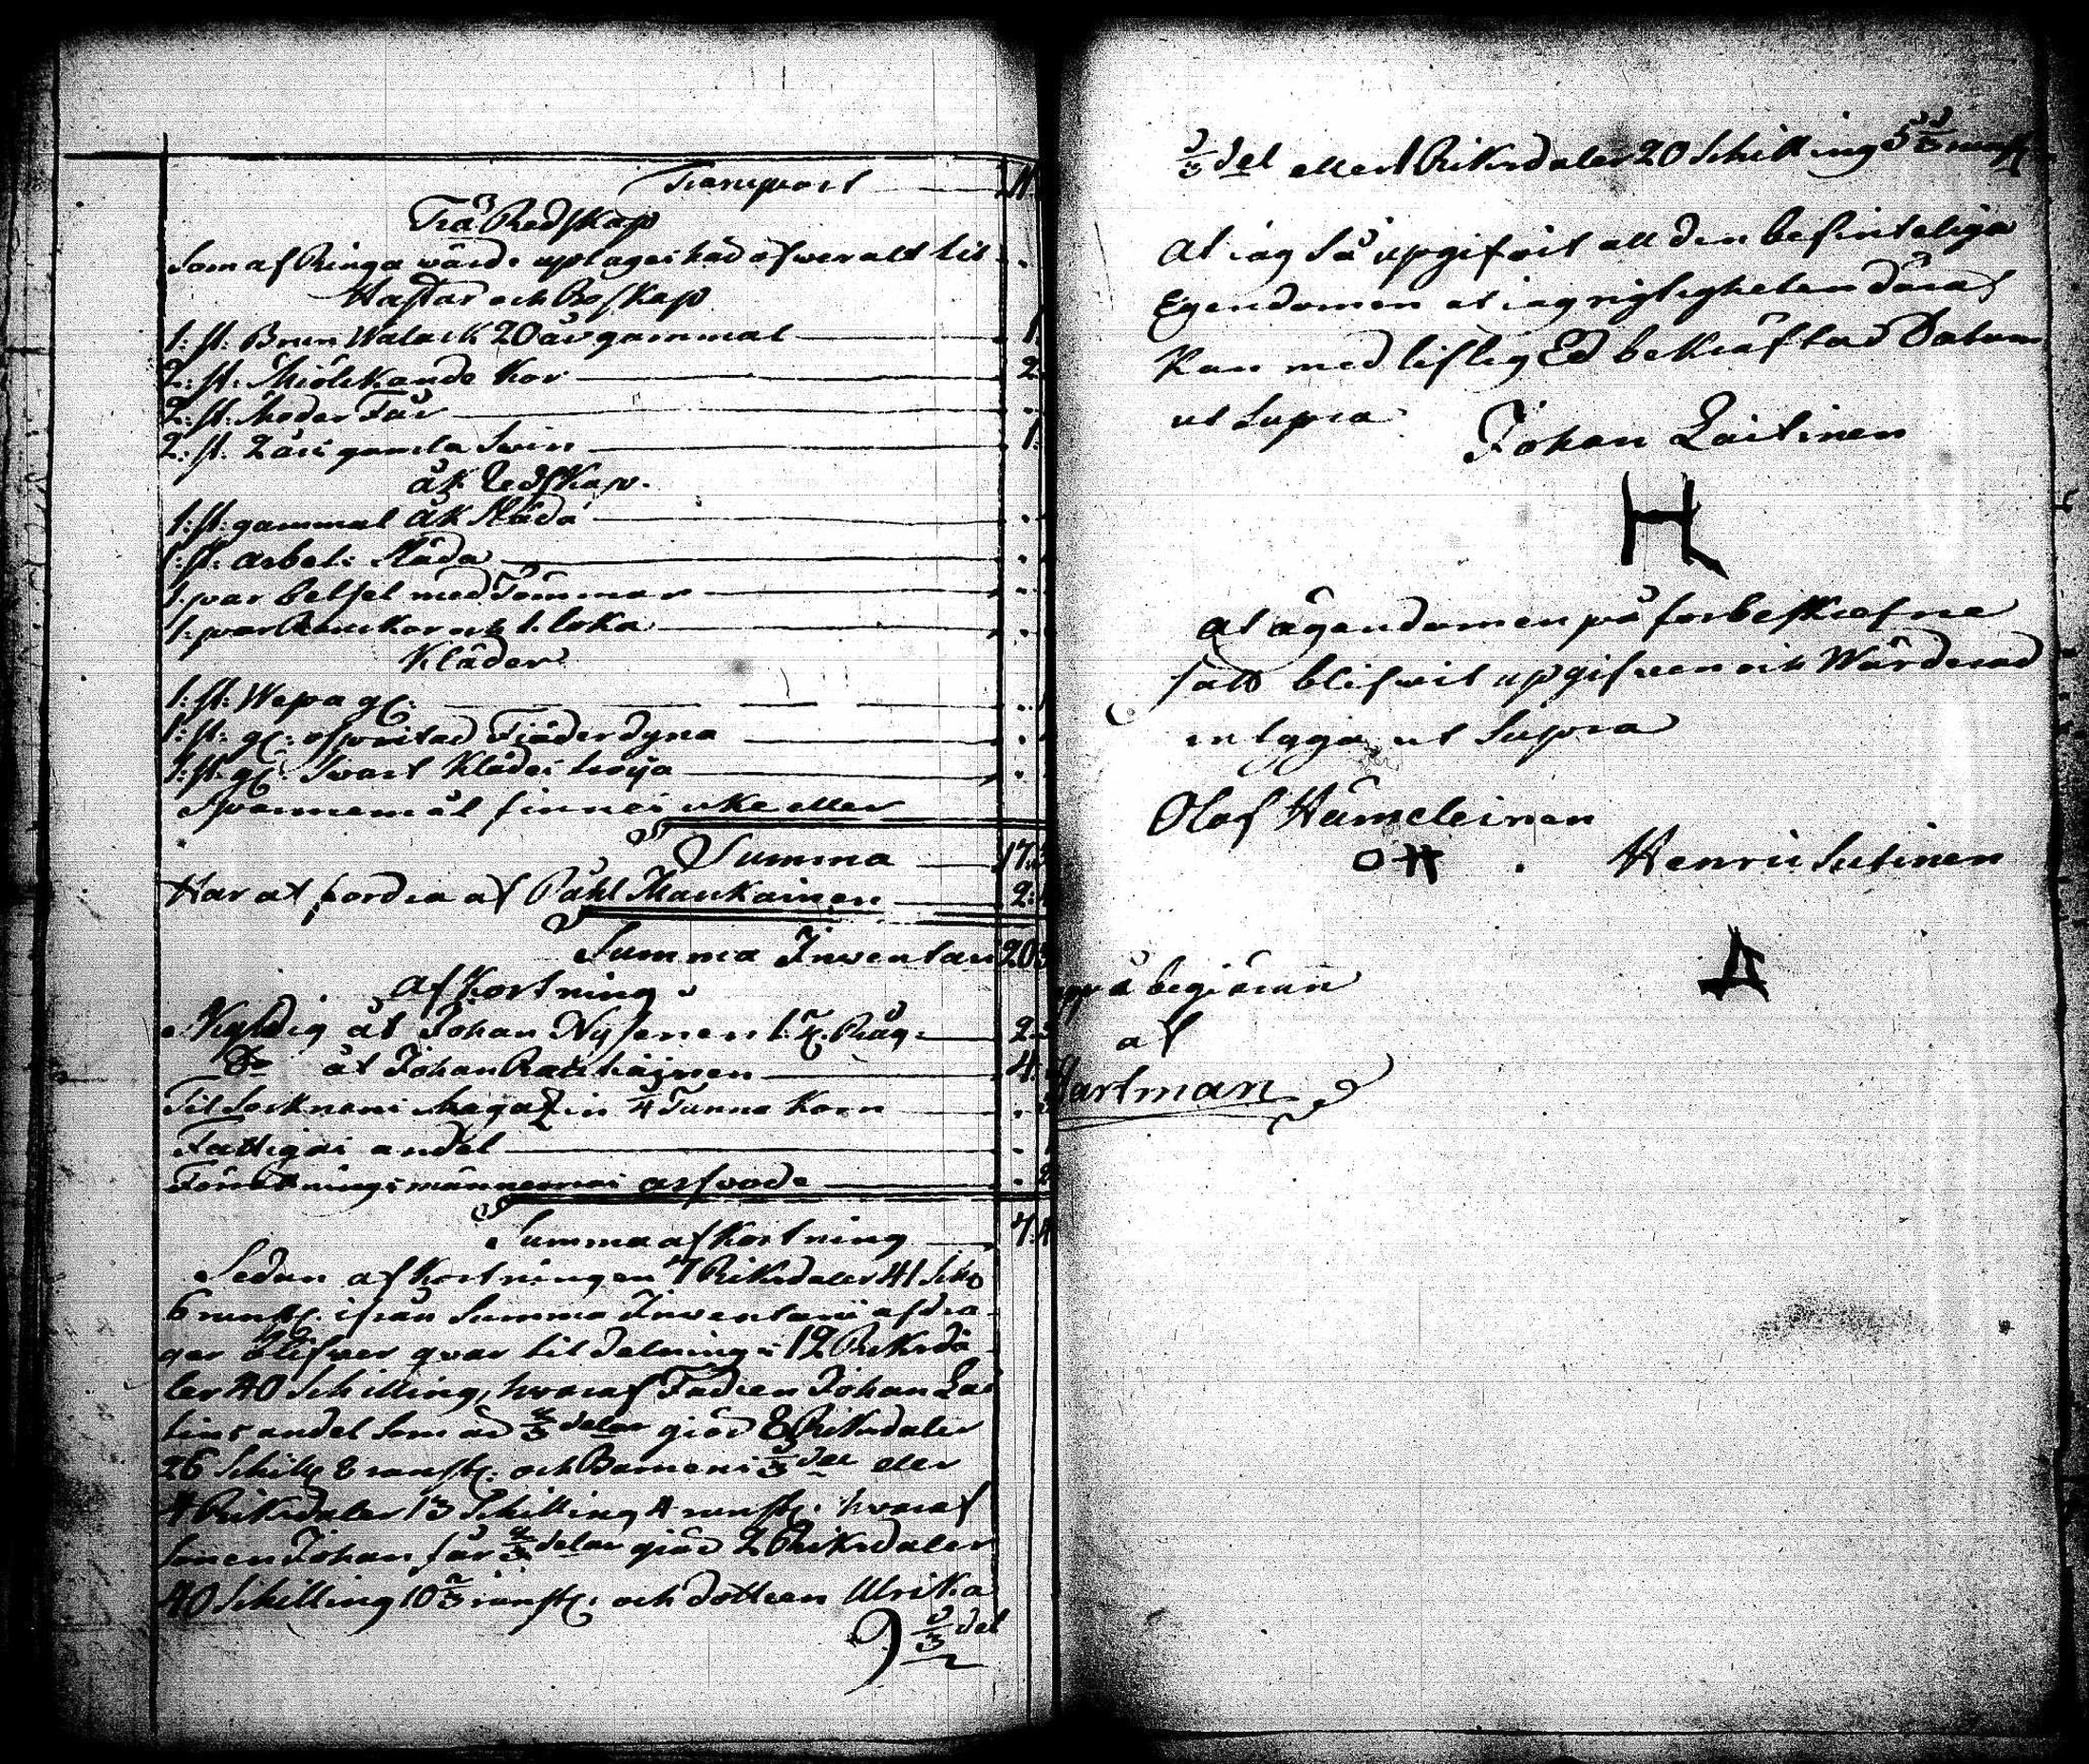 Transport
Trä Redskap
Som af Ringa wärde uptages höd öfwer alt til
Hästar och Boskap
1: st: Brun Walack 20 år gammal 1
2: st: Miölckande Kor 2
2: st: Moder Får
2: st: 2 års gamla Swin 1
åk Redskap.
1: st: gammal åk Släda
1: st: arbets Släda
1: par betsel med Tömmar
1: par Ranckor och 1 loka
Kläder
1: st: Wepa gl:
1: st: gl: Fjäderdyna
1: st: gl: Swart Klädes tröija
Spannemål finnes icke eller
Summa 17
Har at fordra af Påhl Maukainen 2:
Summa Inwentarii 20
Afkortning
Skyldig åt Johan Nyssenen Råg: 2
Do åt Johan Rautiainen 4
Til Socknens Magazin 1/4 Tunna Korn
Fattigas andel
Förrättningsmännernes arfwode 2
Summa afkortning 7
Sedan afkortningen 7 Riksdaler 41 Sch
6 runst: ifrån Summa Inwentarii afdra-
ges blifwer qwar til delning: 12 Riksda
ler 40 Schilling, hwaraf Fadren Johan Lai
tins andel som ad 2/3 delar giör 8 Riksdaler
26 Schill 8 runst: och Barnens 1/3 del eller
4 Riksdaler 13 Schilling 4 runst: hwaraf
Sonen Johan får 2/3 delar giör 2 Riksdaler
40 Schilling 10 2/3 runst: och dottren Ulrika
1/3 del
1/3 del eller 1 Riksdaler 20 Schilling 5 1/3 runst
At iag så upgifwit all den befinteliga
Egendomen at iag rigtigheten däraf
Kan med liflig Ed bekräftad Datum
ut Supra
Johan Laitinen
H
At ägendomen på forbeskrefne
satt blifwit upgifwen och Wärderad
intyga ut Supra
Olof Hämeleinen
OH
Henric Sutinen
på begiäran
af
Hartman